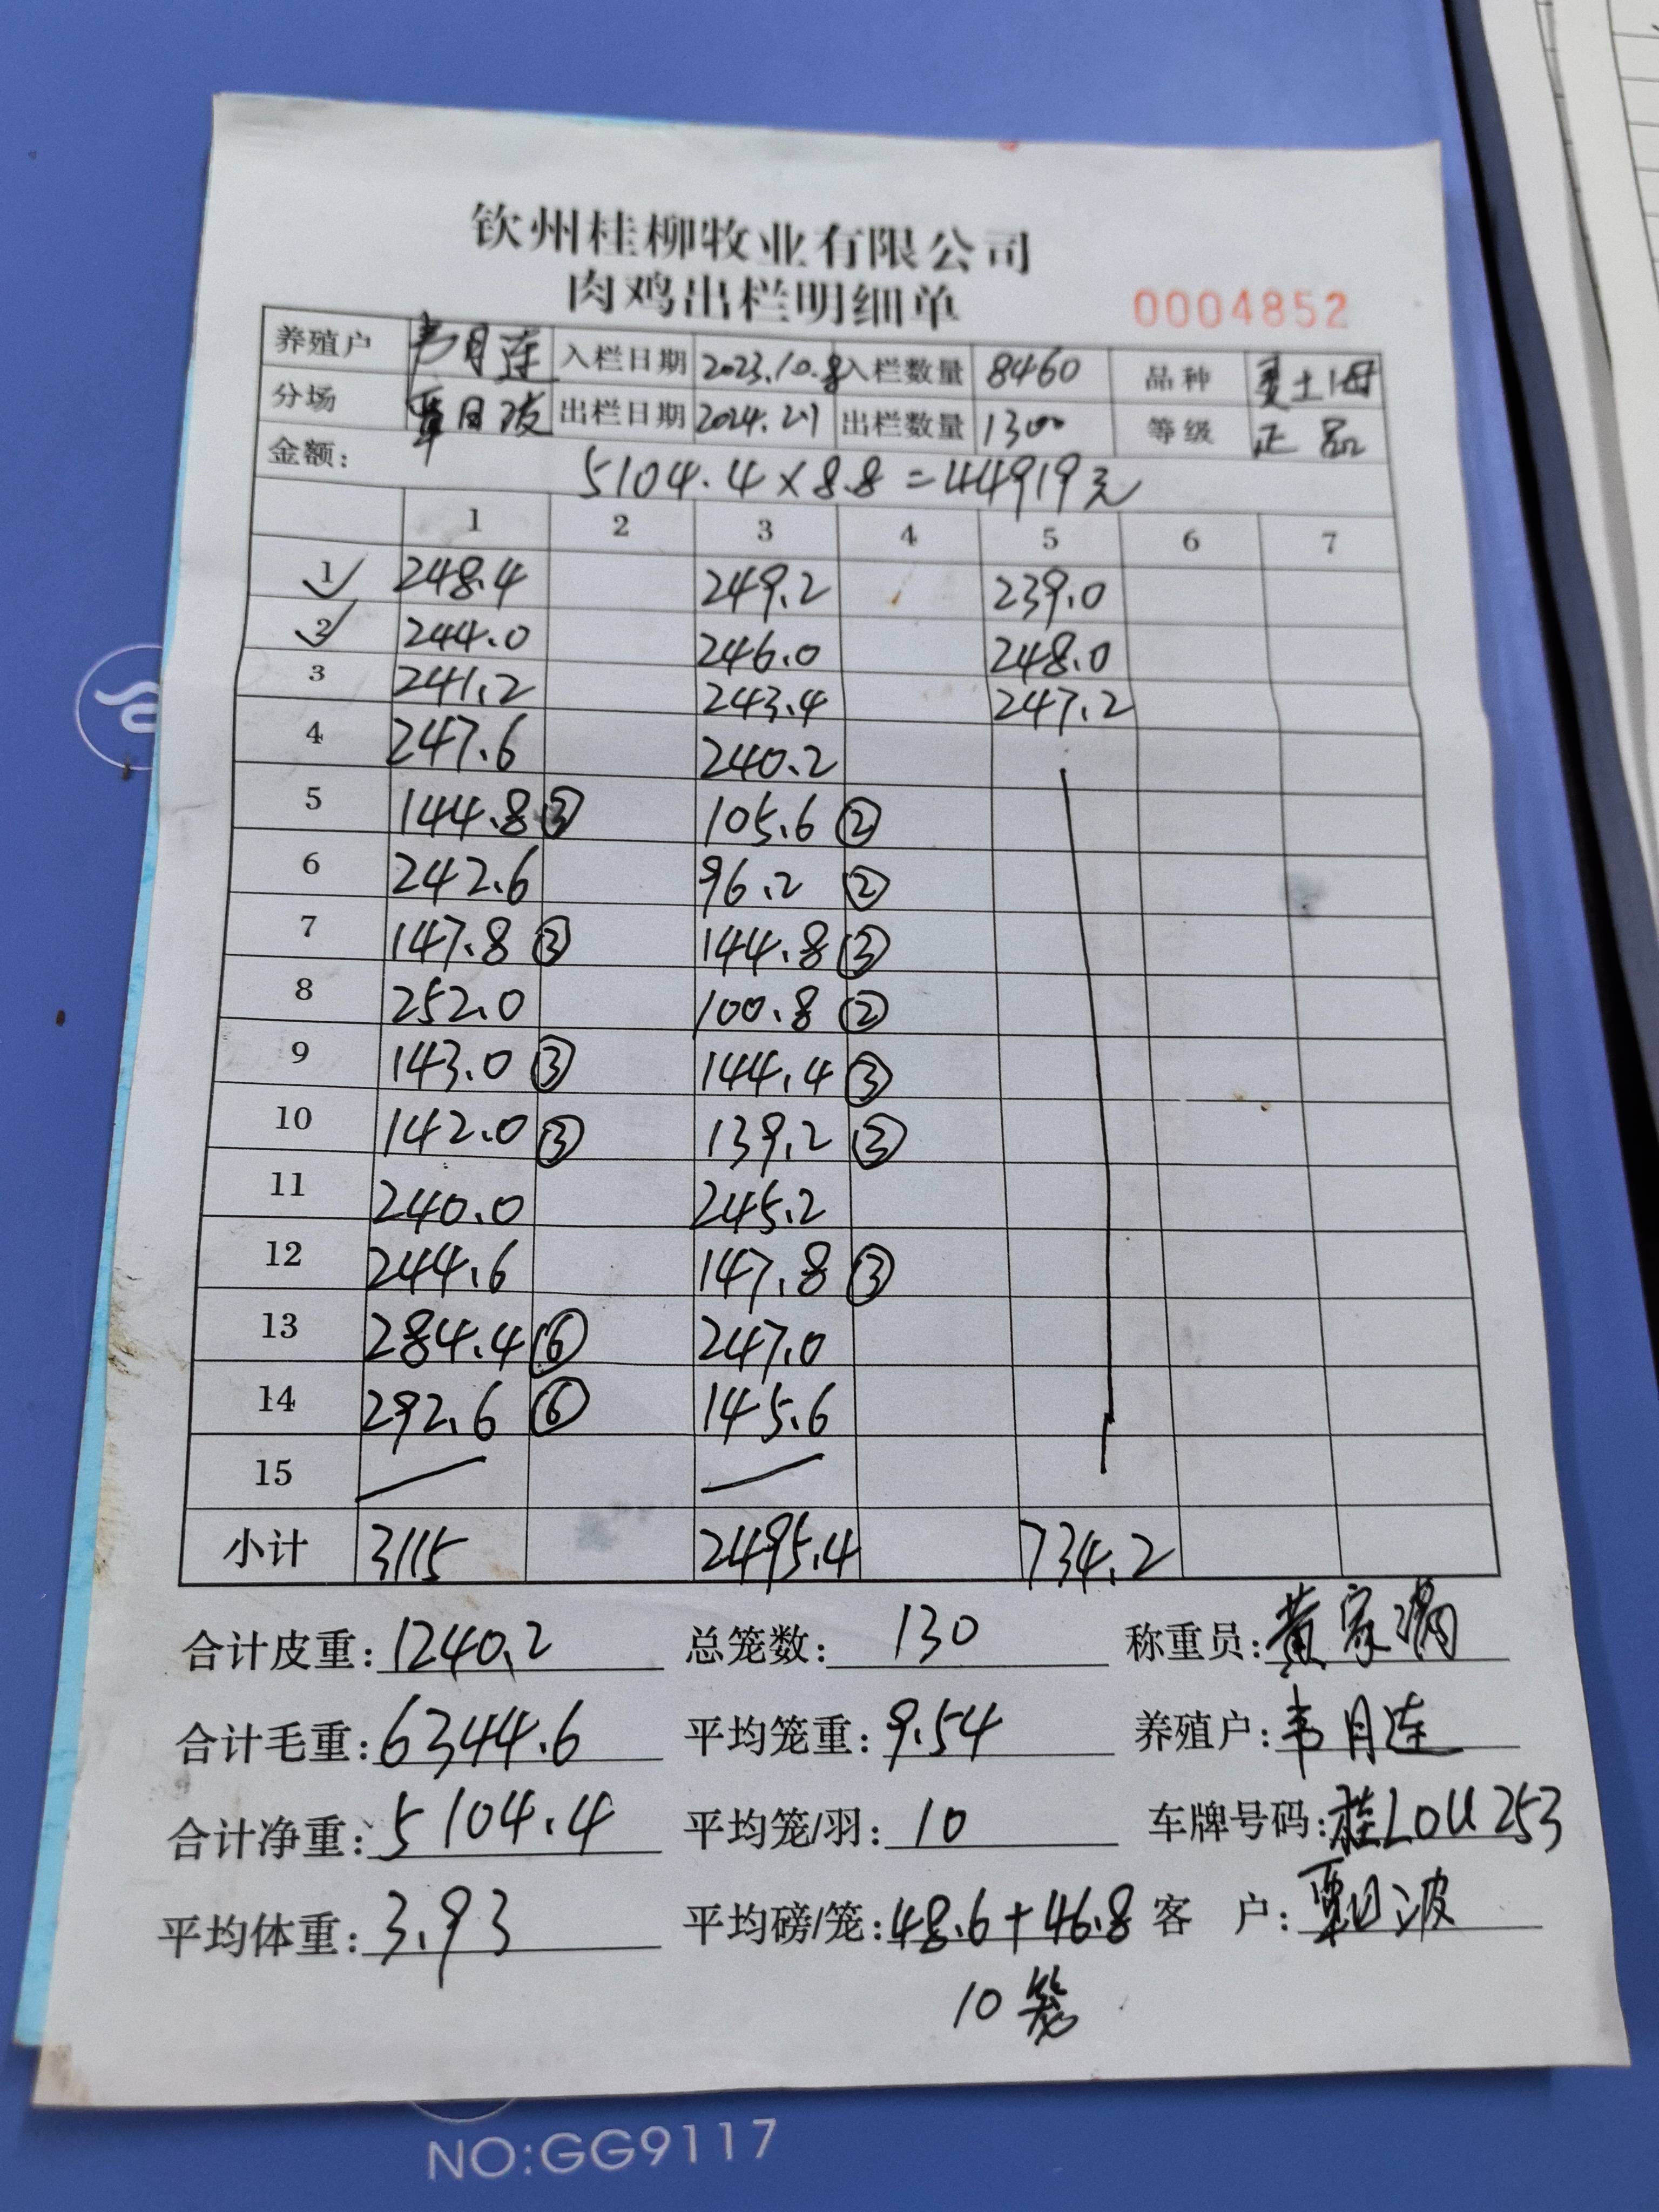 钦州桂柳牧业有限公司
肉鸡出栏明细单
0004852
养殖户 韦月连 入栏日期 2023.10.8 入栏数量 8460 品种 土母
分场 覃日波 出栏日期 2024.2.1 出栏数量 1300 等级 正品
金额: 5104.4×8.8=44919元
1 2 3 4 5 6 7
1 248.4 249.2 239.0
2 244.0 246.0 248.0
3 241.2 243.4 247.2
4 247.6 240.2
5 144.8 ③ 105.6 ②
6 242.6 96.2 ②
7 147.8 ③ 144.8 ③
8 252.0 100.8 ②
9 143.0 ③ 144.4 ③
10 142.0 ③ 139.2 ③
11 240.0 245.2
12 244.6 147.8 ③
13 284.4 ⑥ 247.0
14 292.6 ⑥ 145.6
15
小计 3115 2495.4 734.2
合计皮重: 1240.2 总笼数: 130 称重员: 黄家
合计毛重: 6344.6 平均笼重: 9.54 养殖户: 韦月连
合计净重: 5104.4 平均笼/羽: 10 车牌号码: 桂L0U253
平均体重: 3.93 平均磅/笼: 48.6+46.8 客 户: 覃日波
10笼
NO:GG9117